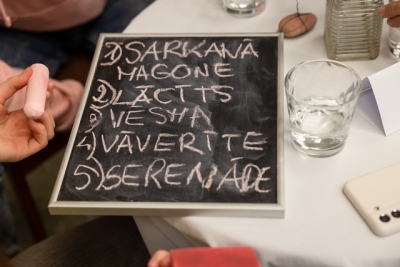 1) SARKANĀ
MAGONE
2) LĀCĪTS
3) VĒSMA
4) VĀVERĪTE
5) SERENĀDE